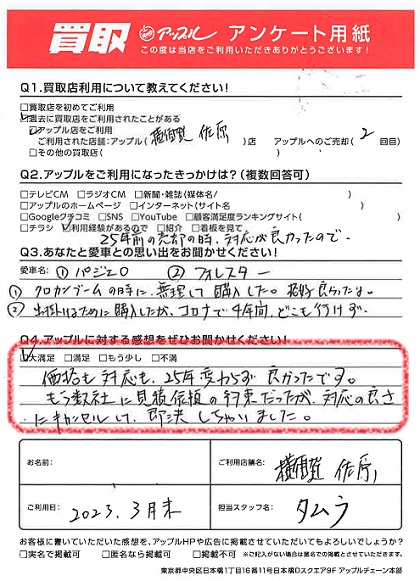 買取 アップル アンケート用紙
この度は当店をご利用いただきありがとうございます!
Q1.買取店利用について教えてください!
□買取店を初めてご利用
☑過去に買取店をご利用されたことがある
☑アップル店をご利用
ご利用された店舗:アップル(横須賀 佐原)店 アップルへのご売却(2 回目)
□その他の買取店(
Q2.アップルをご利用になったきっかけは?(複数回答可)
□テレビCM □ラジオCM □新聞・雑誌(媒体名/ )
□アップルのホームページ □インターネット(サイト名 )
□Googleクチコミ □SNS □YouTube □顧客満足度ランキングサイト( )
□チラシ ☑利用経験があるので □紹介 □看板を見て
25年前の売却の時、対応が良かったので。
Q3.あなたと愛車との思い出をお聞かせください!
愛車名: ① パジェロ ② フォレスター
① クロカンブームの時に、無理して購入した。 格好良かったよ。
② 出掛けるために購入したが、コロナで4年間、どこも行けず。
Q4.アップルに対する感想をぜひお聞かせください!
☑大満足 □満足 □もう少し □不満
価格も対応も、25年変わらず良かったです。
もう数社に見積依頼の約束だったが、対応の良さ
にキャンセルして、即決しちゃいました。
お名前:
ご利用店舗名: 横須賀 佐原
ご利用日: 2023. 3月末
担当スタッフ名: タムラ
お客様に書いていただいた感想を、アップルHPや広告に掲載させていただいてもよろしいでしょうか?
□実名で掲載可 □匿名なら掲載可 □掲載不可 ※ご記入がない場合は匿名での掲載とさせていただきます。
東京都中央区日本橋1丁目16番11号日本橋Dスクエア9F アップルチェーン本部